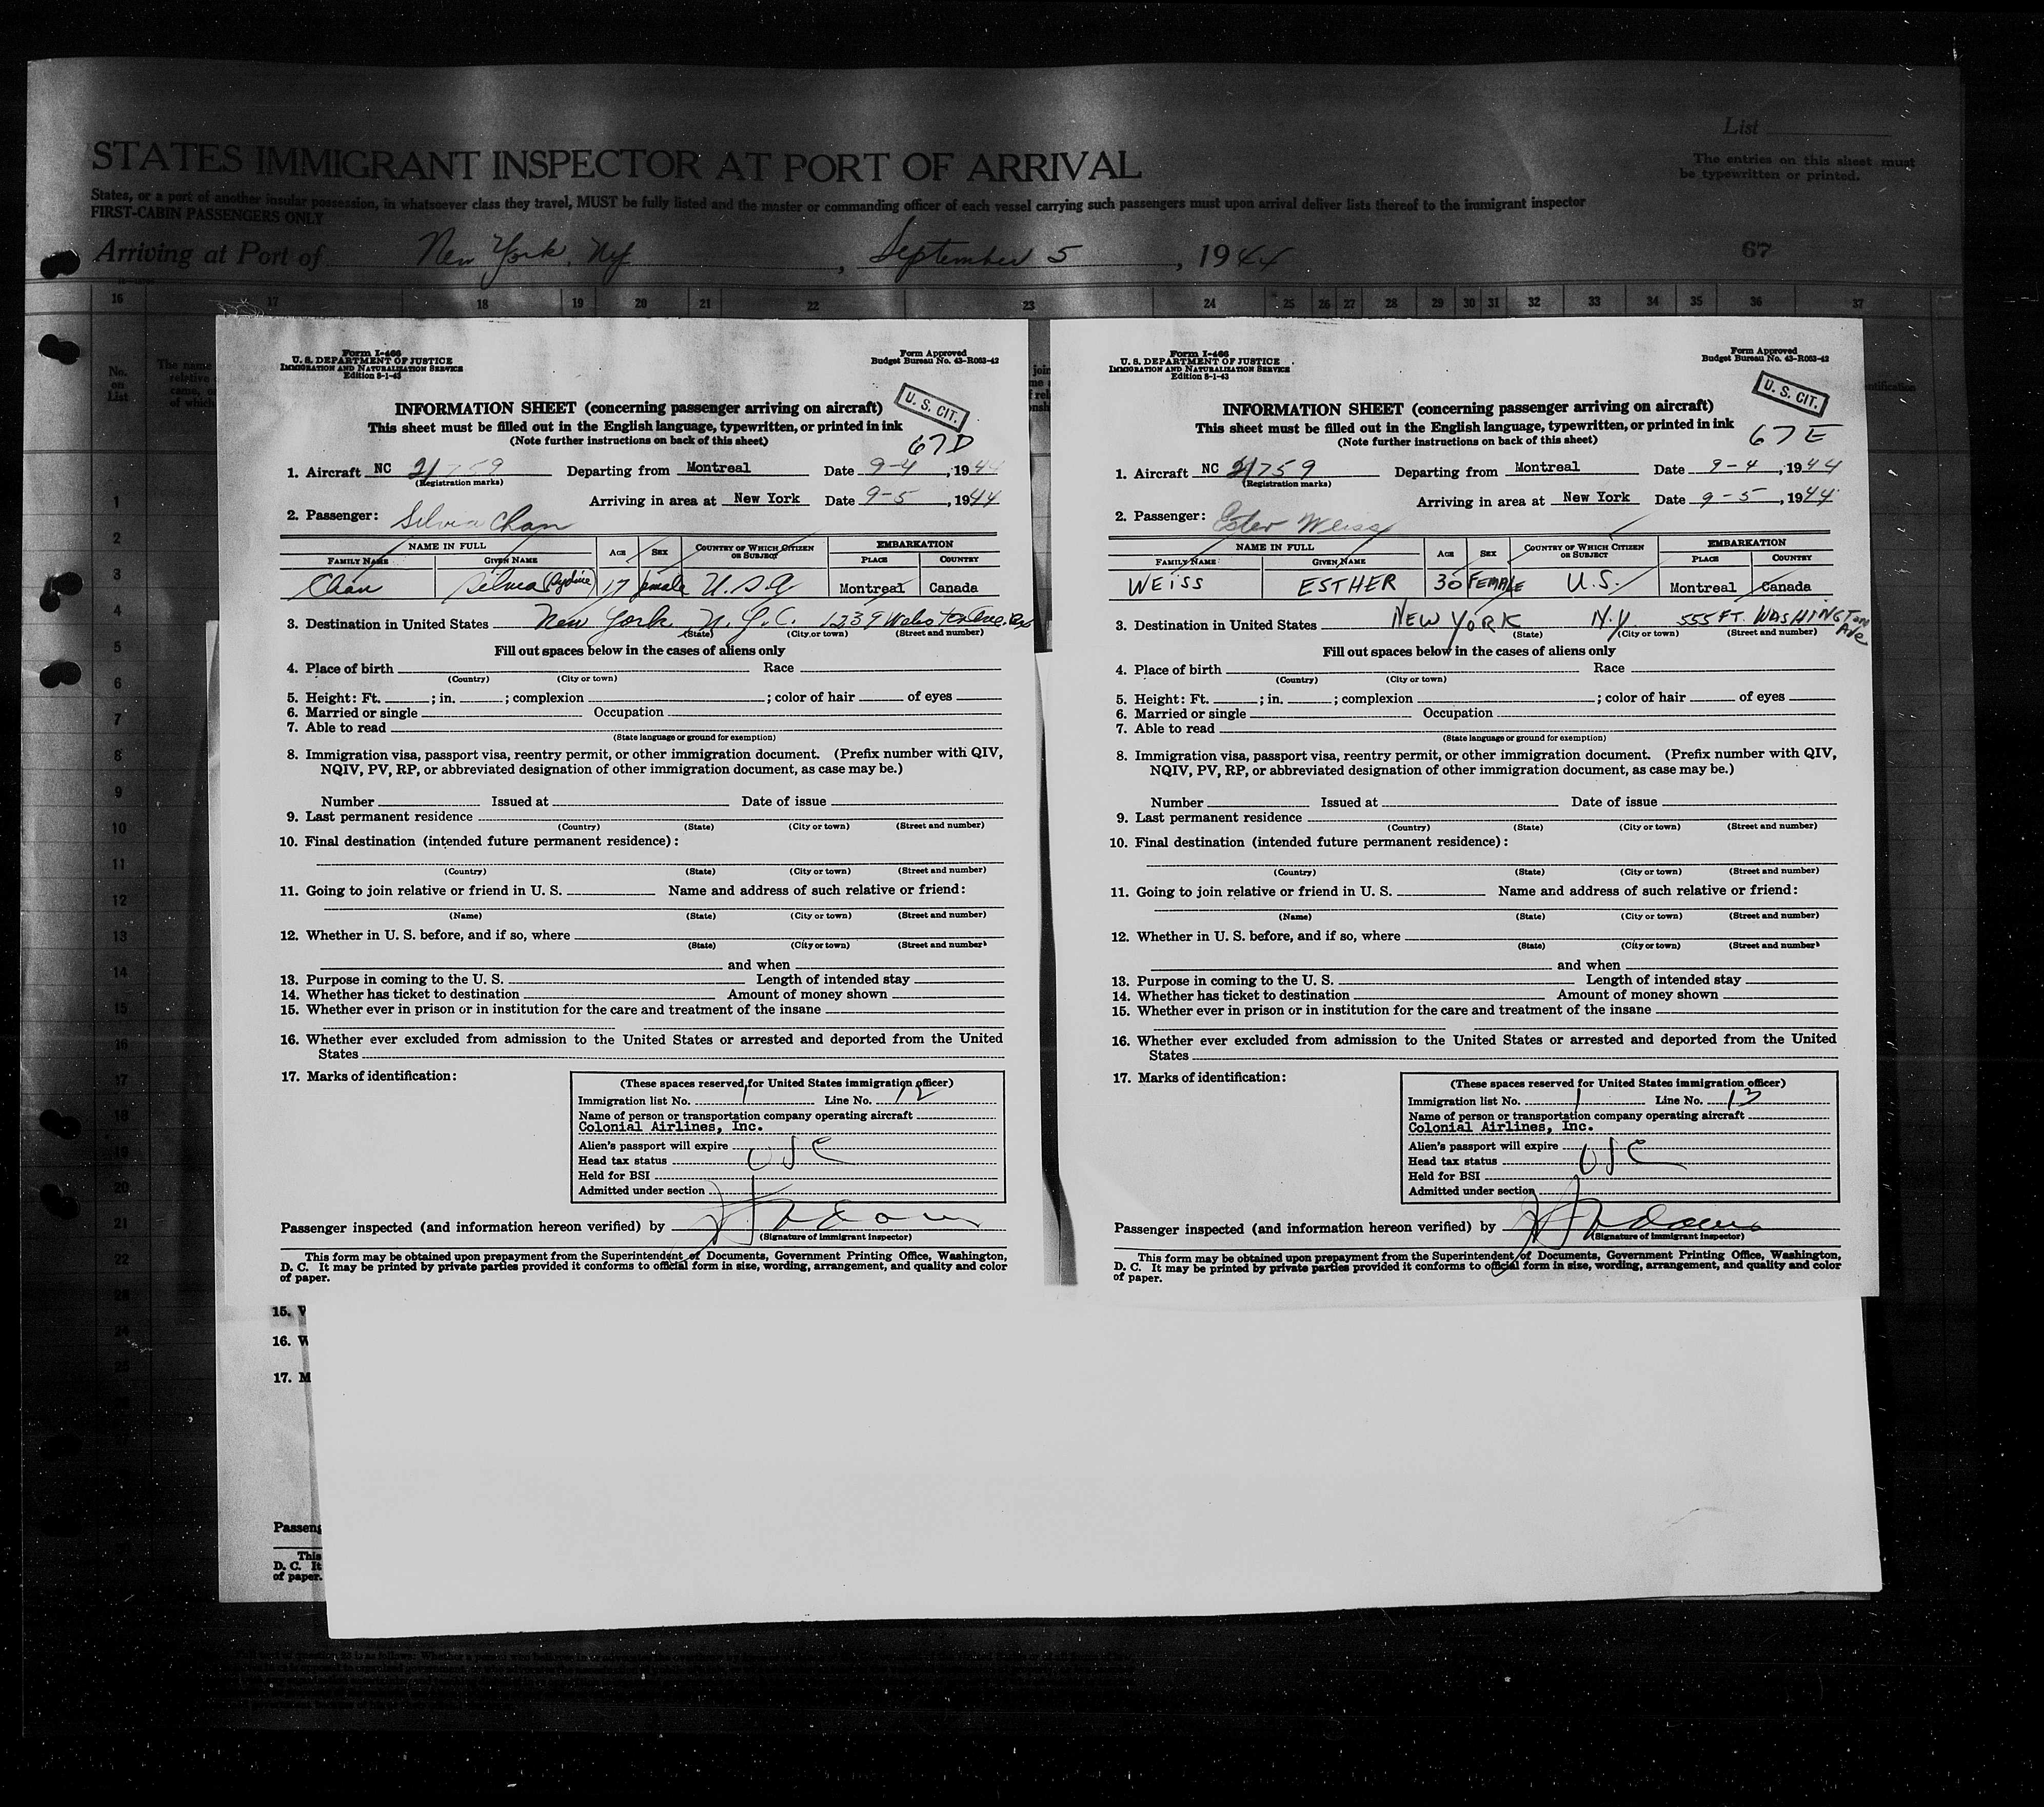 List
STATES IMMIGRANT INSPECTOR AT PORT OF ARRIVAL
The entries on this sheet must
be typewritten or printed.
States, or a port of another insular possession, in whatsoever class they travel, MUST be fully listed and the master or commanding officer of each vessel carrying such passengers must upon arrival deliver lists thereof to the immigrant inspector
FIRST-CABIN PASSENGERS ONLY
Arriving at Port of New York, NY, September 5, 1944
67
16 17 18 19 20 21 22 23 24 25 26 27 28 29 30 31 32 33 34 35 36 37
No.
on
List
The name
relative
came, or
of which
1
2
3
4
5
6
7
8
9
10
11
12
13
14
15
16
17
18
19
20
21
22
Form I-466
U. S. DEPARTMENT OF JUSTICE
IMMIGRATION AND NATURALIZATION SERVICE
Edition 8-1-43
Form Approved
Budget Bureau No. 43-R063-42
U. S. CIT.
INFORMATION SHEET (concerning passenger arriving on aircraft)
This sheet must be filled out in the English language, typewritten, or printed in ink
(Note further instructions on back of this sheet)
67D
1. Aircraft NC 21759 Departing from Montreal Date 9-4, 1944
(Registration marks)
Arriving in area at New York Date 9-5, 1944
2. Passenger: Silvia Chan
NAME IN FULL AGE SEX COUNTRY OF WHICH CITIZEN OR SUBJECT EMBARKATION
FAMILY NAME GIVEN NAME PLACE COUNTRY
Chan Silvia 17 female U.S.A Montreal Canada
3. Destination in United States New York N.Y.C. 1239 Webster Ave.
(State) (City or town) (Street and number)
Fill out spaces below in the cases of aliens only
4. Place of birth Race
(Country) (City or town)
5. Height: Ft. ; in. ; complexion ; color of hair of eyes
6. Married or single Occupation
7. Able to read
(State language or ground for exemption)
8. Immigration visa, passport visa, reentry permit, or other immigration document. (Prefix number with QIV,
NQIV, PV, RP, or abbreviated designation of other immigration document, as case may be.)
Number Issued at Date of issue
9. Last permanent residence
(Country) (State) (City or town) (Street and number)
10. Final destination (intended future permanent residence):
(Country) (State) (City or town) (Street and number)
11. Going to join relative or friend in U. S. Name and address of such relative or friend:
(Name) (State) (City or town) (Street and number)
12. Whether in U. S. before, and if so, where
(State) (City or town) (Street and number)
and when
13. Purpose in coming to the U. S. Length of intended stay
14. Whether has ticket to destination Amount of money shown
15. Whether ever in prison or in institution for the care and treatment of the insane
16. Whether ever excluded from admission to the United States or arrested and deported from the United
States
17. Marks of identification:
(These spaces reserved for United States immigration officer)
Immigration list No. 1 Line No. 12
Name of person or transportation company operating aircraft
Colonial Airlines, Inc.
Alien's passport will expire
Head tax status USC
Held for BSI
Admitted under section
Passenger inspected (and information hereon verified) by
(Signature of immigrant inspector)
This form may be obtained upon prepayment from the Superintendent of Documents, Government Printing Office, Washington,
D. C. It may be printed by private parties provided it conforms to official form in size, wording, arrangement, and quality and color
of paper.
Form I-466
U. S. DEPARTMENT OF JUSTICE
IMMIGRATION AND NATURALIZATION SERVICE
Edition 8-1-43
Form Approved
Budget Bureau No. 43-R063-42
U. S. CIT.
INFORMATION SHEET (concerning passenger arriving on aircraft)
This sheet must be filled out in the English language, typewritten, or printed in ink
(Note further instructions on back of this sheet)
67E
1. Aircraft NC 21759 Departing from Montreal Date 9-4, 1944
(Registration marks)
Arriving in area at New York Date 9-5, 1944
2. Passenger: Ester Weiss
NAME IN FULL AGE SEX COUNTRY OF WHICH CITIZEN OR SUBJECT EMBARKATION
FAMILY NAME GIVEN NAME PLACE COUNTRY
WEISS ESTHER 30 FEMALE U.S. Montreal Canada
3. Destination in United States NEW YORK N.Y. 555 FT. WASHINGTON AVE
(State) (City or town) (Street and number)
Fill out spaces below in the cases of aliens only
4. Place of birth Race
(Country) (City or town)
5. Height: Ft. ; in. ; complexion ; color of hair of eyes
6. Married or single Occupation
7. Able to read
(State language or ground for exemption)
8. Immigration visa, passport visa, reentry permit, or other immigration document. (Prefix number with QIV,
NQIV, PV, RP, or abbreviated designation of other immigration document, as case may be.)
Number Issued at Date of issue
9. Last permanent residence
(Country) (State) (City or town) (Street and number)
10. Final destination (intended future permanent residence):
(Country) (State) (City or town) (Street and number)
11. Going to join relative or friend in U. S. Name and address of such relative or friend:
(Name) (State) (City or town) (Street and number)
12. Whether in U. S. before, and if so, where
(State) (City or town) (Street and number)
and when
13. Purpose in coming to the U. S. Length of intended stay
14. Whether has ticket to destination Amount of money shown
15. Whether ever in prison or in institution for the care and treatment of the insane
16. Whether ever excluded from admission to the United States or arrested and deported from the United
States
17. Marks of identification:
(These spaces reserved for United States immigration officer)
Immigration list No. 1 Line No. 13
Name of person or transportation company operating aircraft
Colonial Airlines, Inc.
Alien's passport will expire
Head tax status USC
Held for BSI
Admitted under section
Passenger inspected (and information hereon verified) by
(Signature of immigrant inspector)
This form may be obtained upon prepayment from the Superintendent of Documents, Government Printing Office, Washington,
D. C. It may be printed by private parties provided it conforms to official form in size, wording, arrangement, and quality and color
of paper.
15. W
16. W
17. M
Passeng
This
D. C. It
of paper.